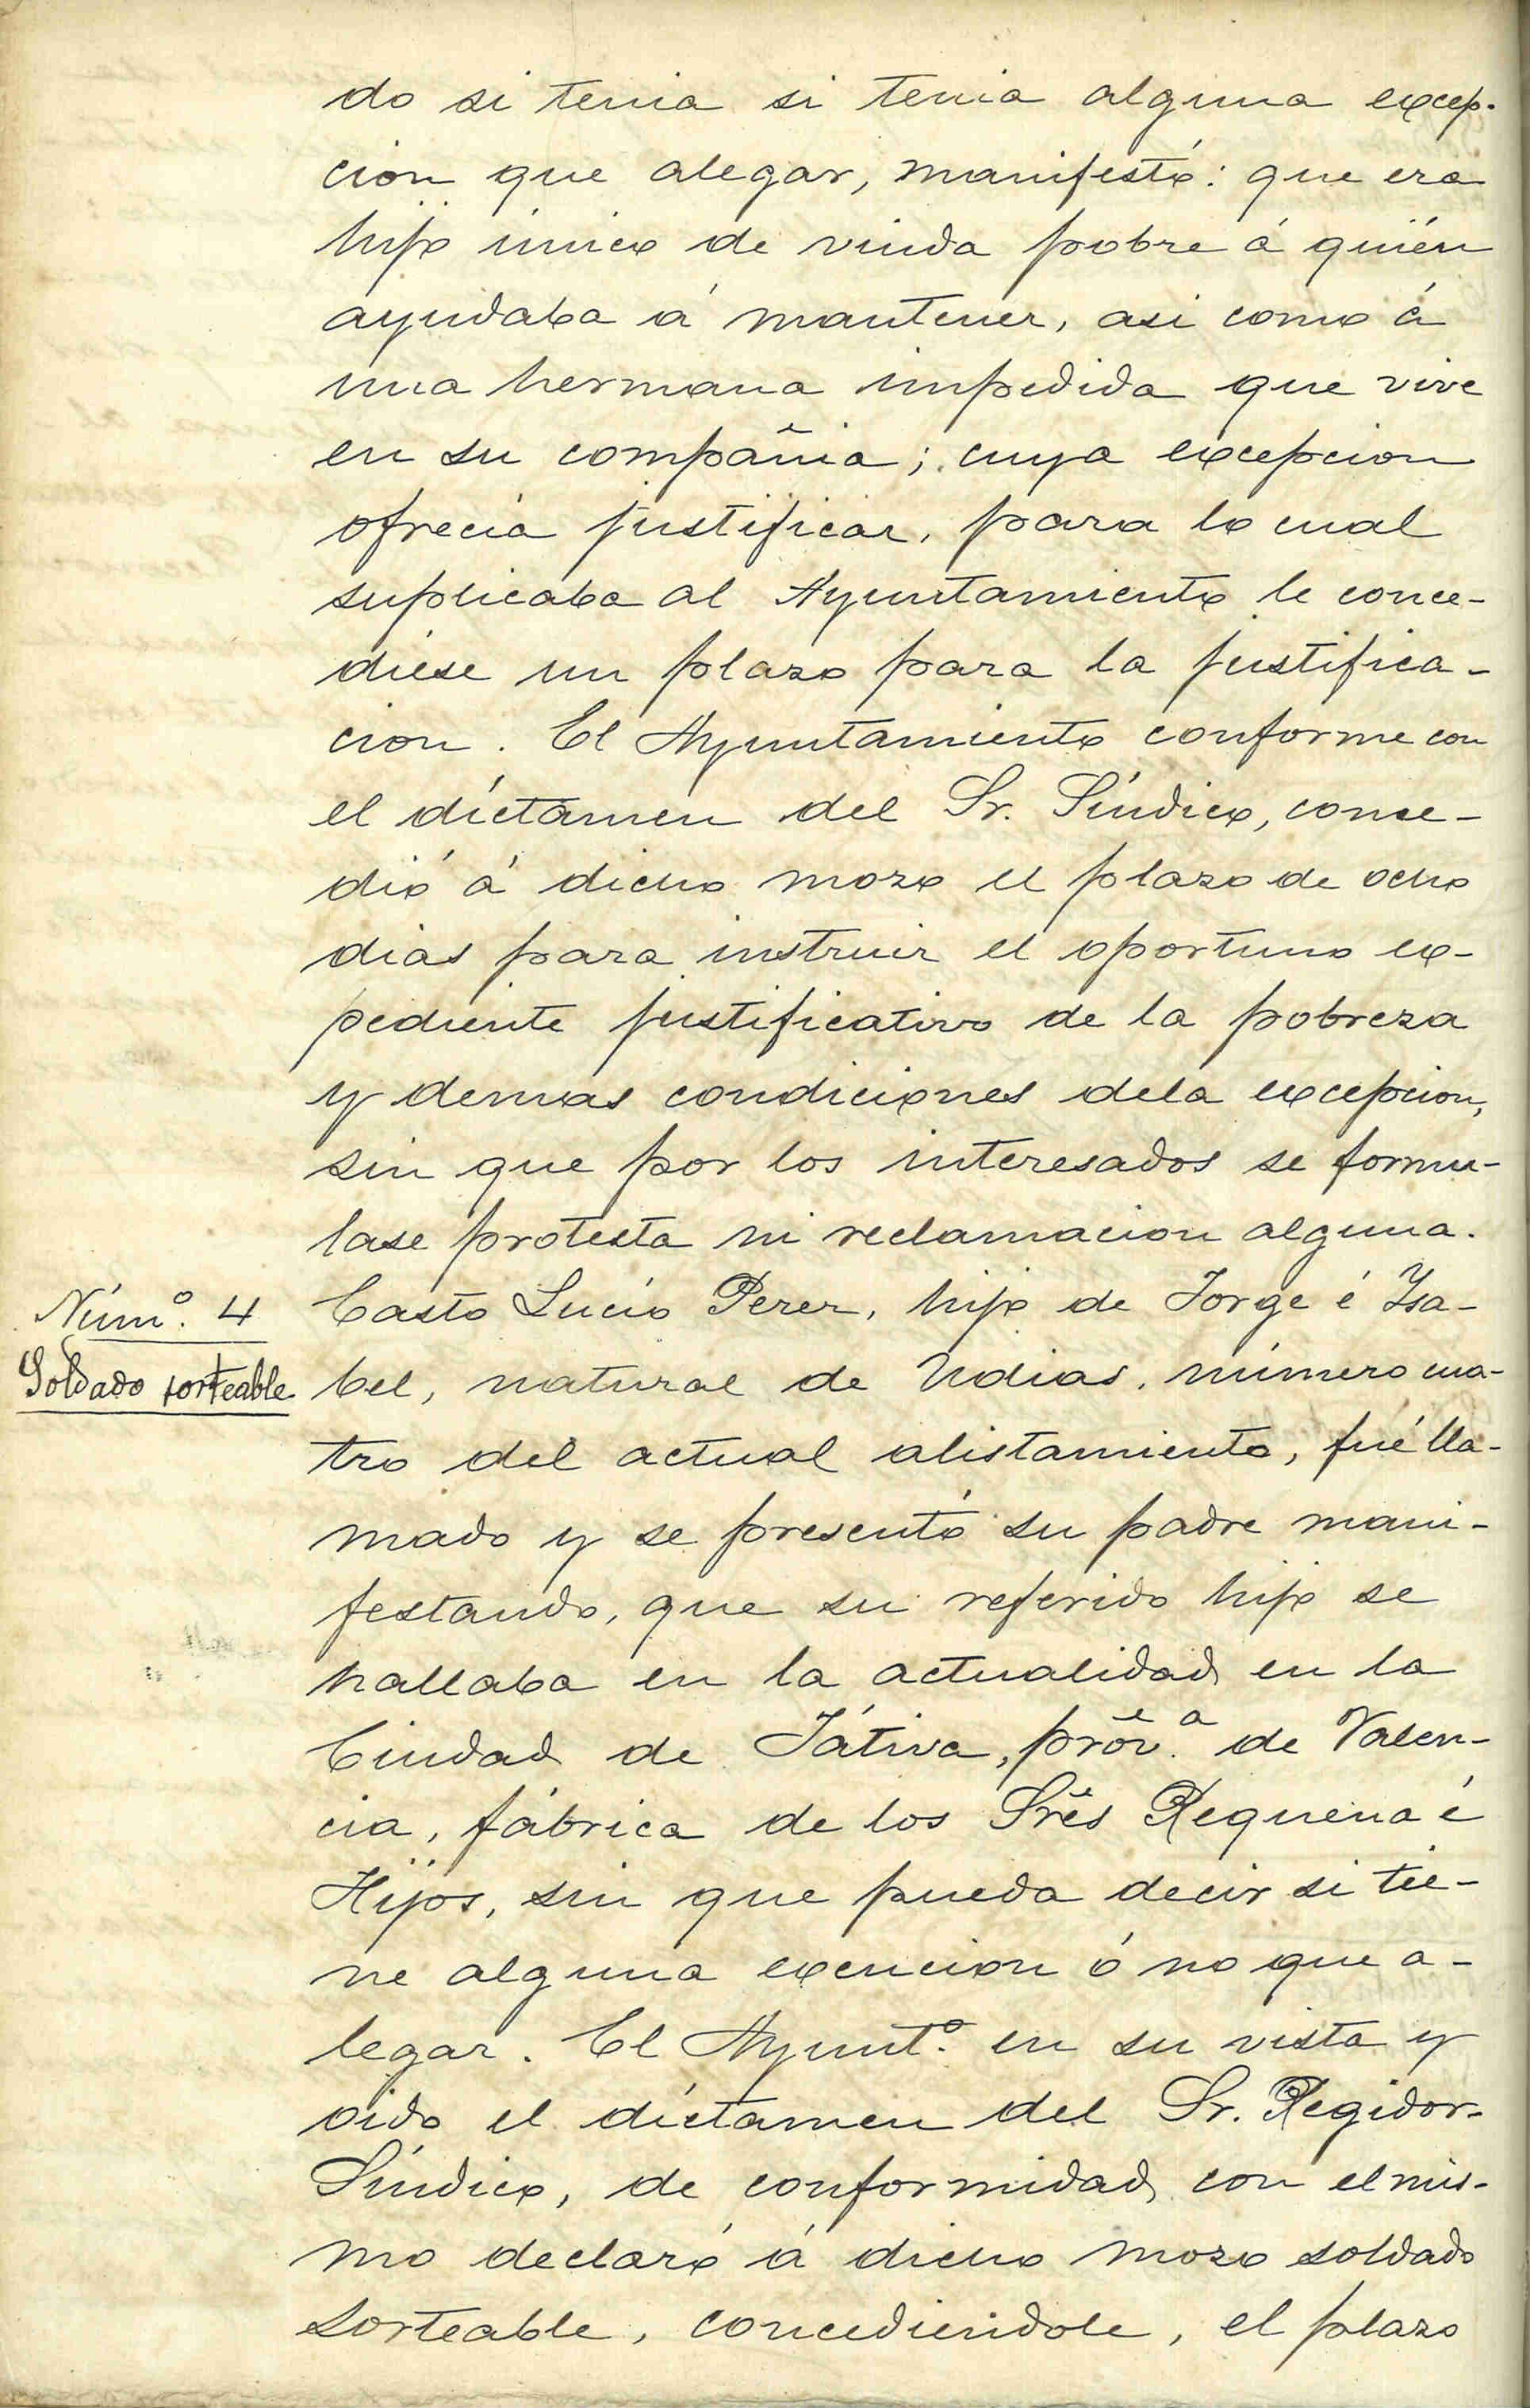 do si tenia si tenia alguna excep-
cion que alegar, manifestó: que era
hijo único de viuda pobre á quién
ayudaba á mantener, asi como á
una hermana impedida que vive
en su compañia; cuya excepcion
ofrecia justificar, para lo cual
suplicaba al Ayuntamiento le conce-
diese un plazo para la justifica-
cion. El Ayuntamiento conforme con
el dictámen del Sr. Síndico, conce-
dió á dicho mozo el plazo de ocho
dias para instruir el oportuno ex-
pediente justificativo de la pobreza
y demas condiciones dela excepcion,
sin que por los interesados se formu-
lase protesta ni reclamacion alguna.
Núm.º 4
Soldado sorteable
Casto Lucio Perez, hijo de Jorge é Ysa-
bel, natural de Udias, número cua-
tro del actual alistamiento, fué lla-
mado y se presentó su padre mani-
festando, que su referido hijo se
hallaba en la actualidad en la
Ciudad de Játiva, prov.ª de Valen-
cia, fábrica de los Sres Requena é
Hijos, sin que pueda decir si tie-
ne alguna exencion ó no que a-
legar. El Ayunt.º en su vista y
oido el dictamen del Sr. Regidor-
Síndico, de conformidad con el mis-
mo declaró á dicho mozo soldado
sorteable, concediendole, el plazo